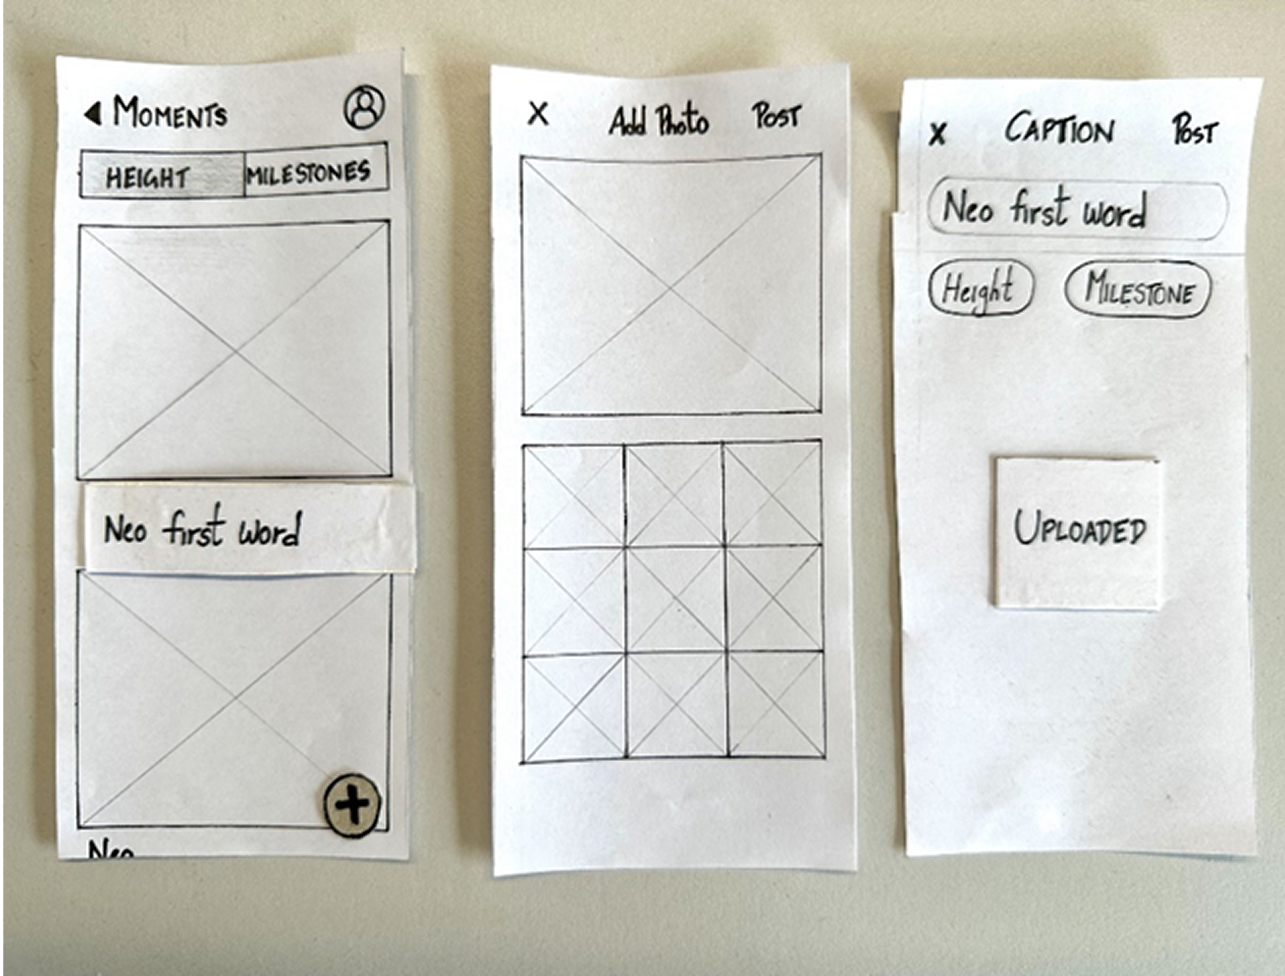 MOMENTS
HEIGHT
MILESTONES
Neo first word
Neo
X
Add Photo
POST
X
CAPTION
POST
Neo first word
Height
MILESTONE
UPLOADED